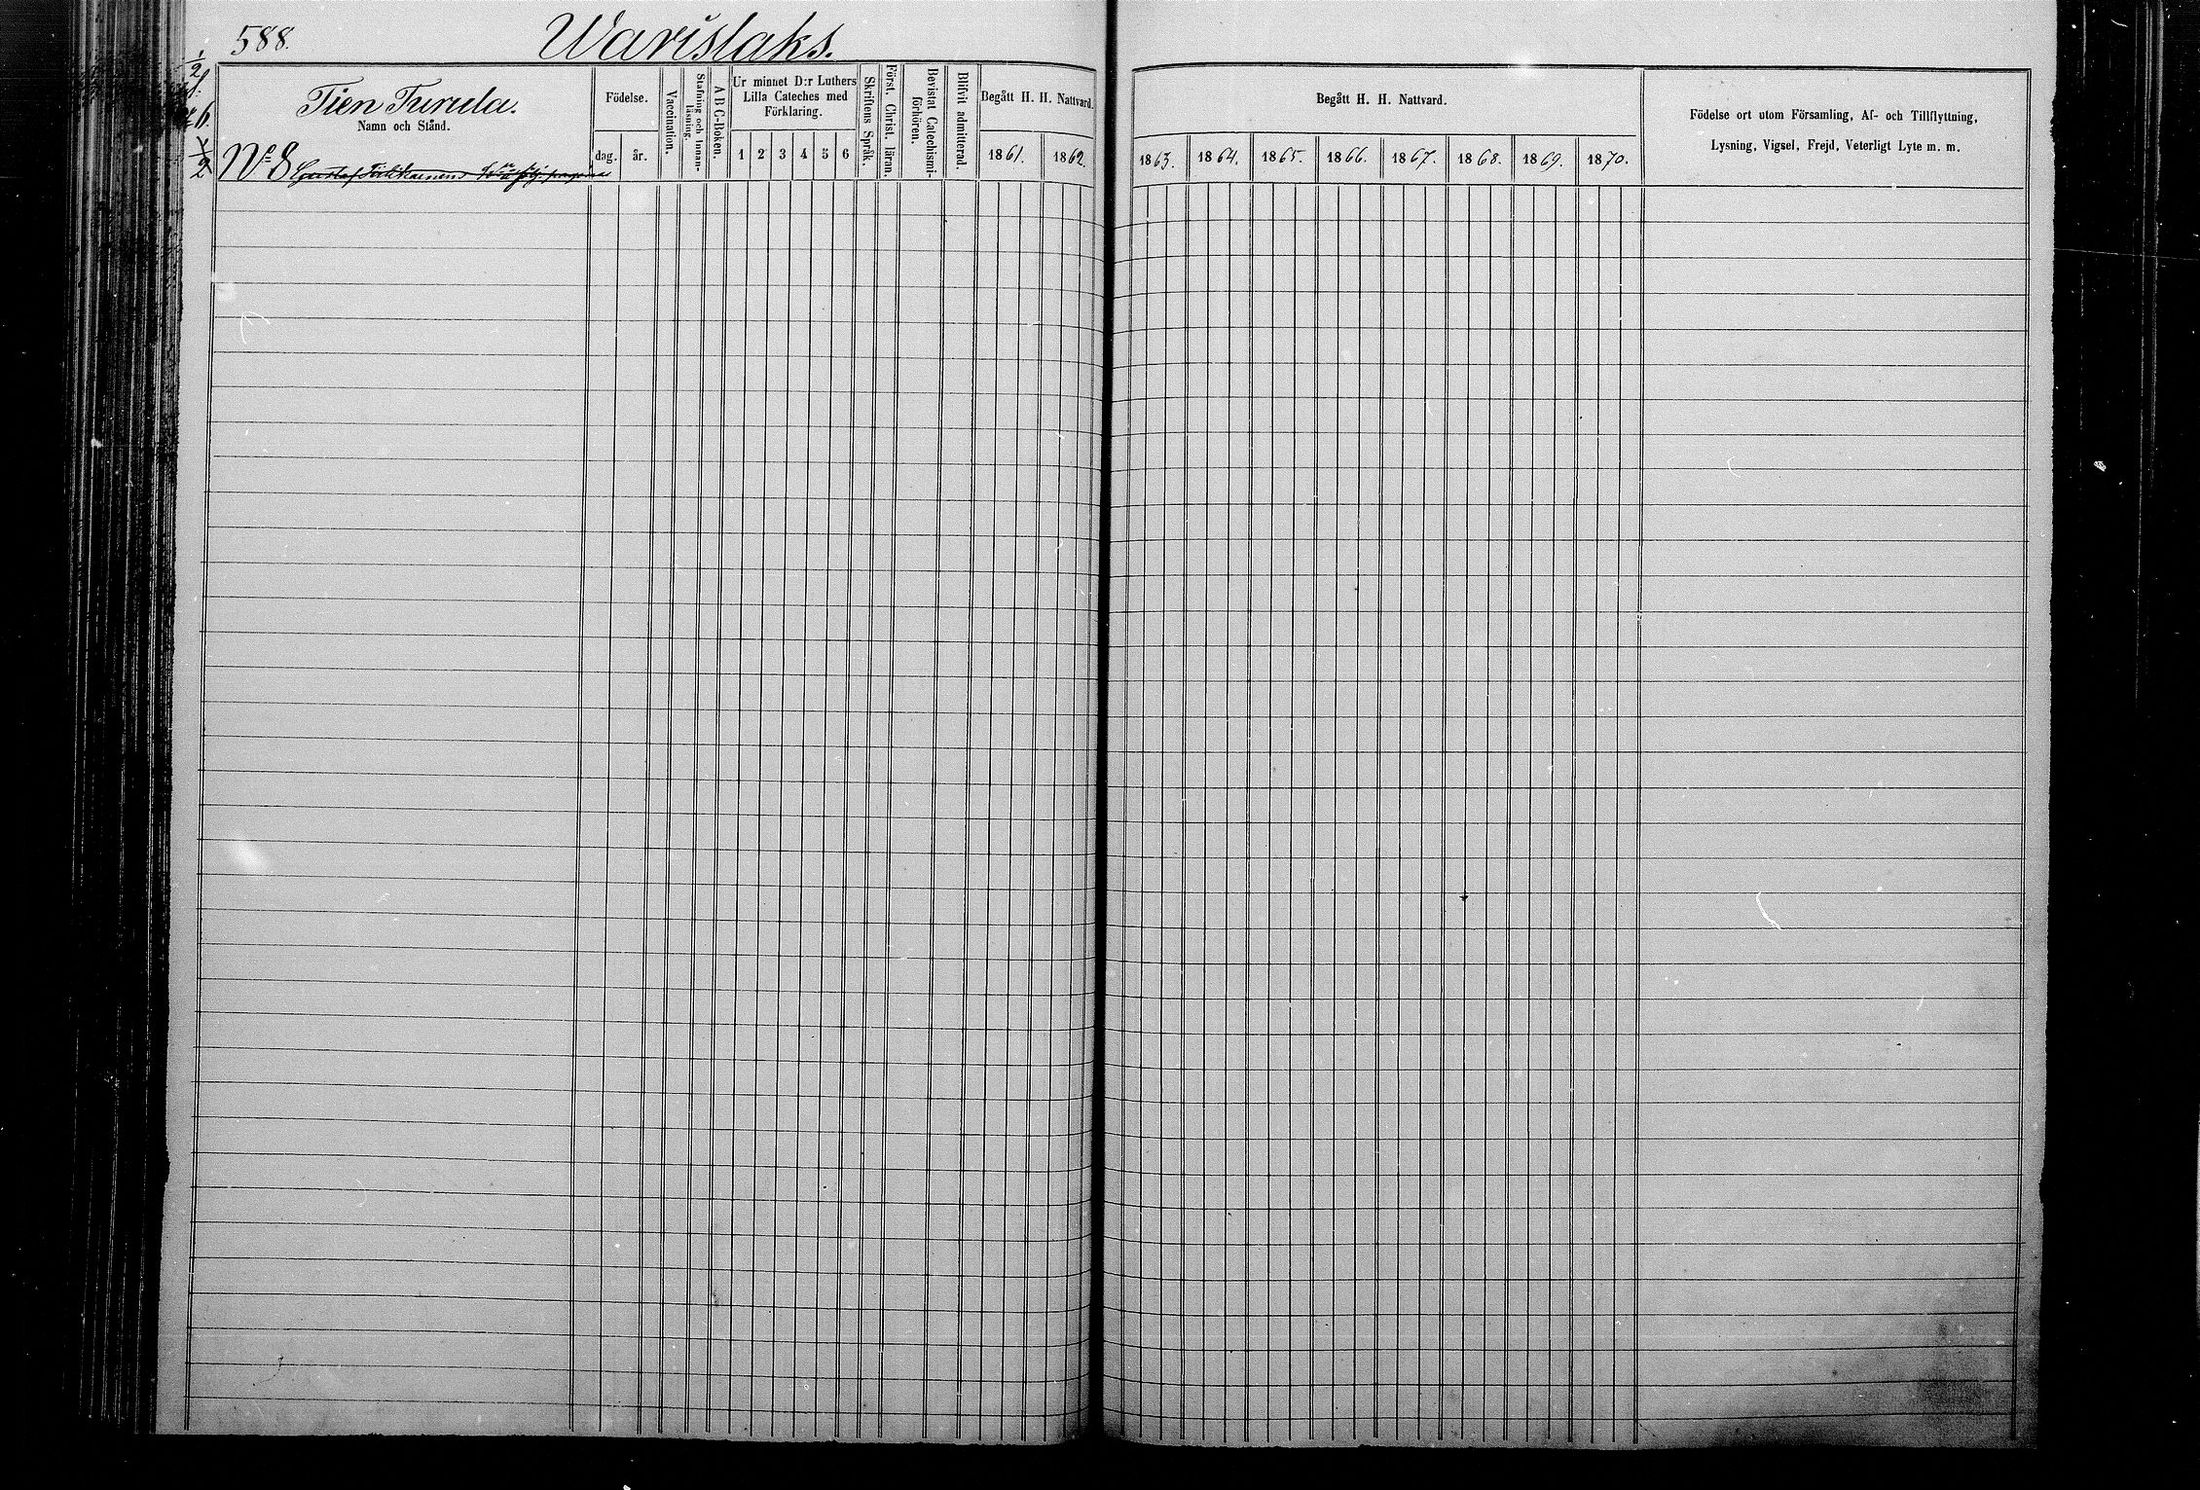 588.
Warislaks.
Tien Turula.
Namn och Stånd.
Födelse.
dag.
år.
Vaccination.
Stafning och Innanläsning.
A B C-Boken.
Ur minnet D:r Luthers
Lilla Cateches med
Förklaring.
1 2 3 4 5 6
Skriftens Språk.
Först. Christ. läran.
Bevistat Catechismi-
förhören.
Blifvit admitterad.
Begått H. H. Nattvard.
1861. 1862.
Begått H. H. Nattvard.
1863. 1864. 1865. 1866. 1867. 1868. 1869. 1870.
Födelse ort utom Församling, Af- och Tillflyttning,
Lysning, Vigsel, Frejd, Veterligt Lyte m. m.
1/2
6.
2
No 8 Gustaf